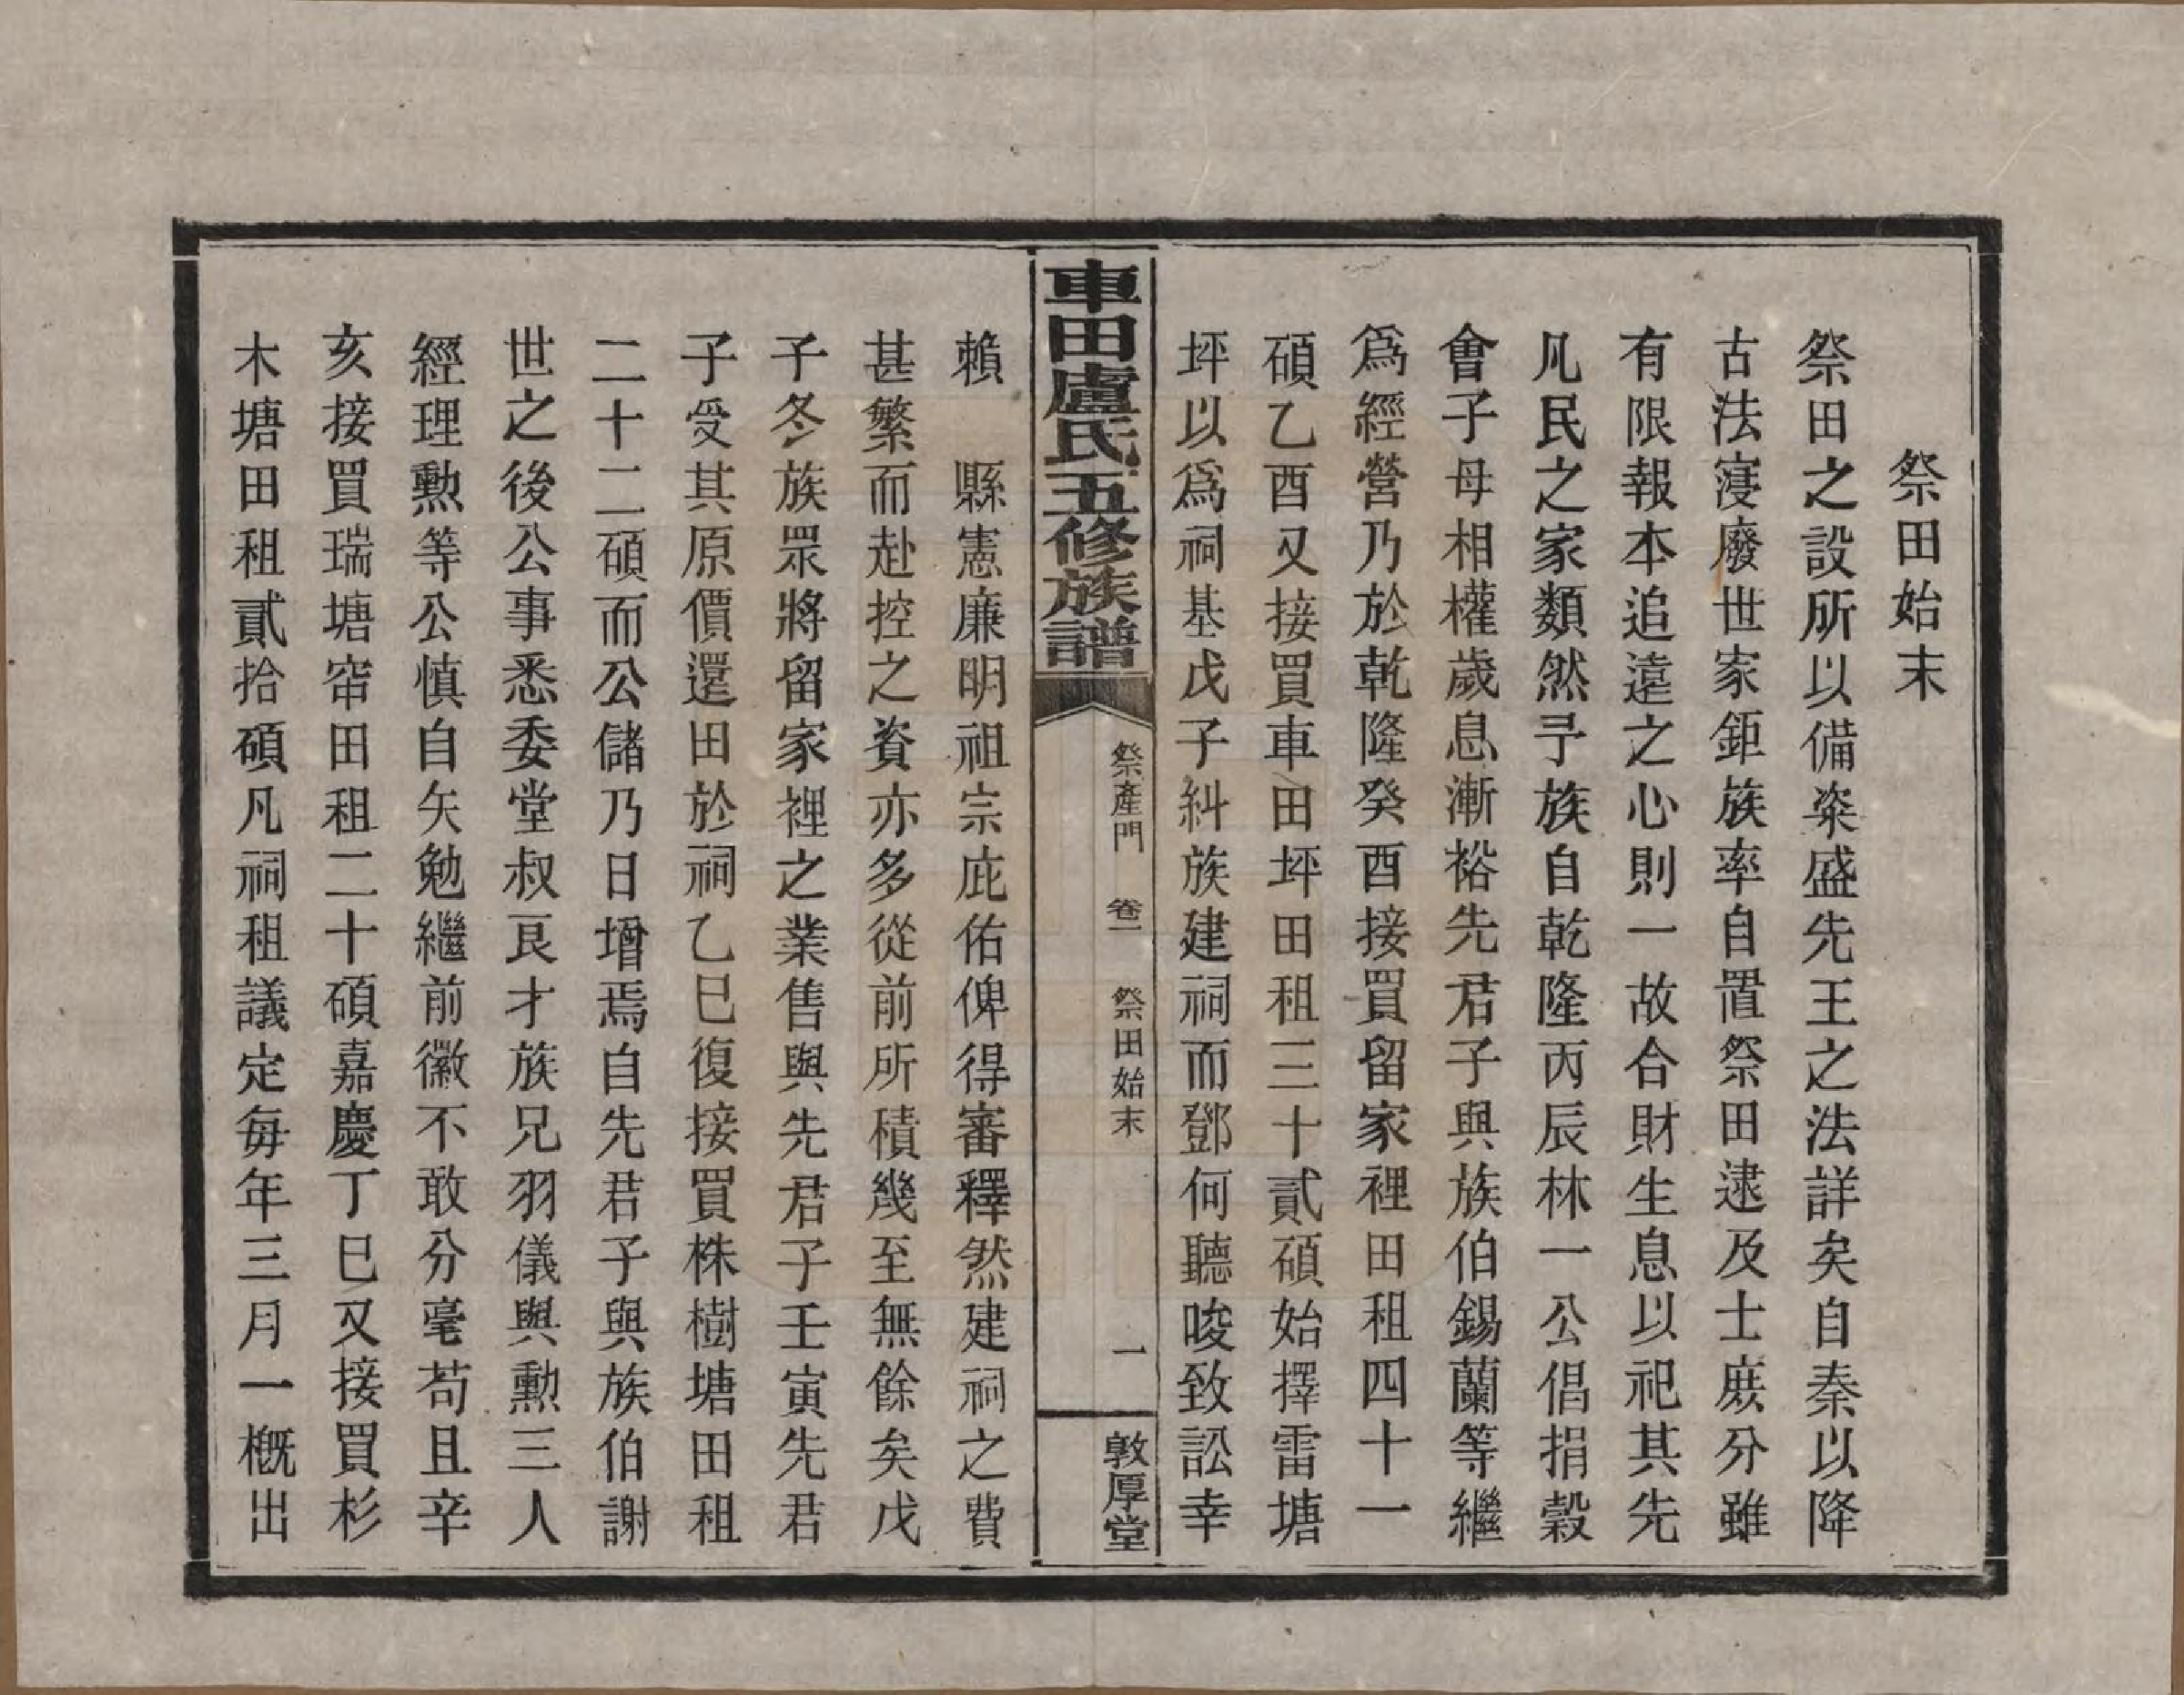 祭田始末
祭田之設所以備粢盛先王之法詳矣自秦以降
古法寖廢世家鉅族率自置祭田逮及士庶分雖
有限報本追遠之心則一故合財生息以祀其先
凡民之家類然予族自乾隆丙辰林一公倡捐穀
會子母相權歲息漸裕先君子與族伯錫蘭等繼
爲經營乃於乾隆癸酉接買留家裡田租四十一
碩乙酉又接買車田坪田租三十貳碩始擇雷塘
坪以爲祠基戊子糾族建祠而鄧何聽唆致訟幸
車田盧氏五修族譜
祭產門 卷一 祭田始末
一
敦厚堂
賴 縣憲廉明祖宗庇佑俾得審釋然建祠之費
甚繁而赴控之資亦多從前所積幾至無餘矣戊
子冬族眾將留家裡之業售與先君子壬寅先君
子受其原價還田於祠乙巳復接買株樹塘田租
二十二碩而公儲乃日增焉自先君子與族伯謝
世之後公事悉委堂叔艮才族兄羽儀與勳三人
經理勳等公慎自矢勉繼前徽不敢分毫苟且辛
亥接買瑞塘帘田租二十碩嘉慶丁巳又接買杉
木塘田租貳拾碩凡祠租議定每年三月一概出